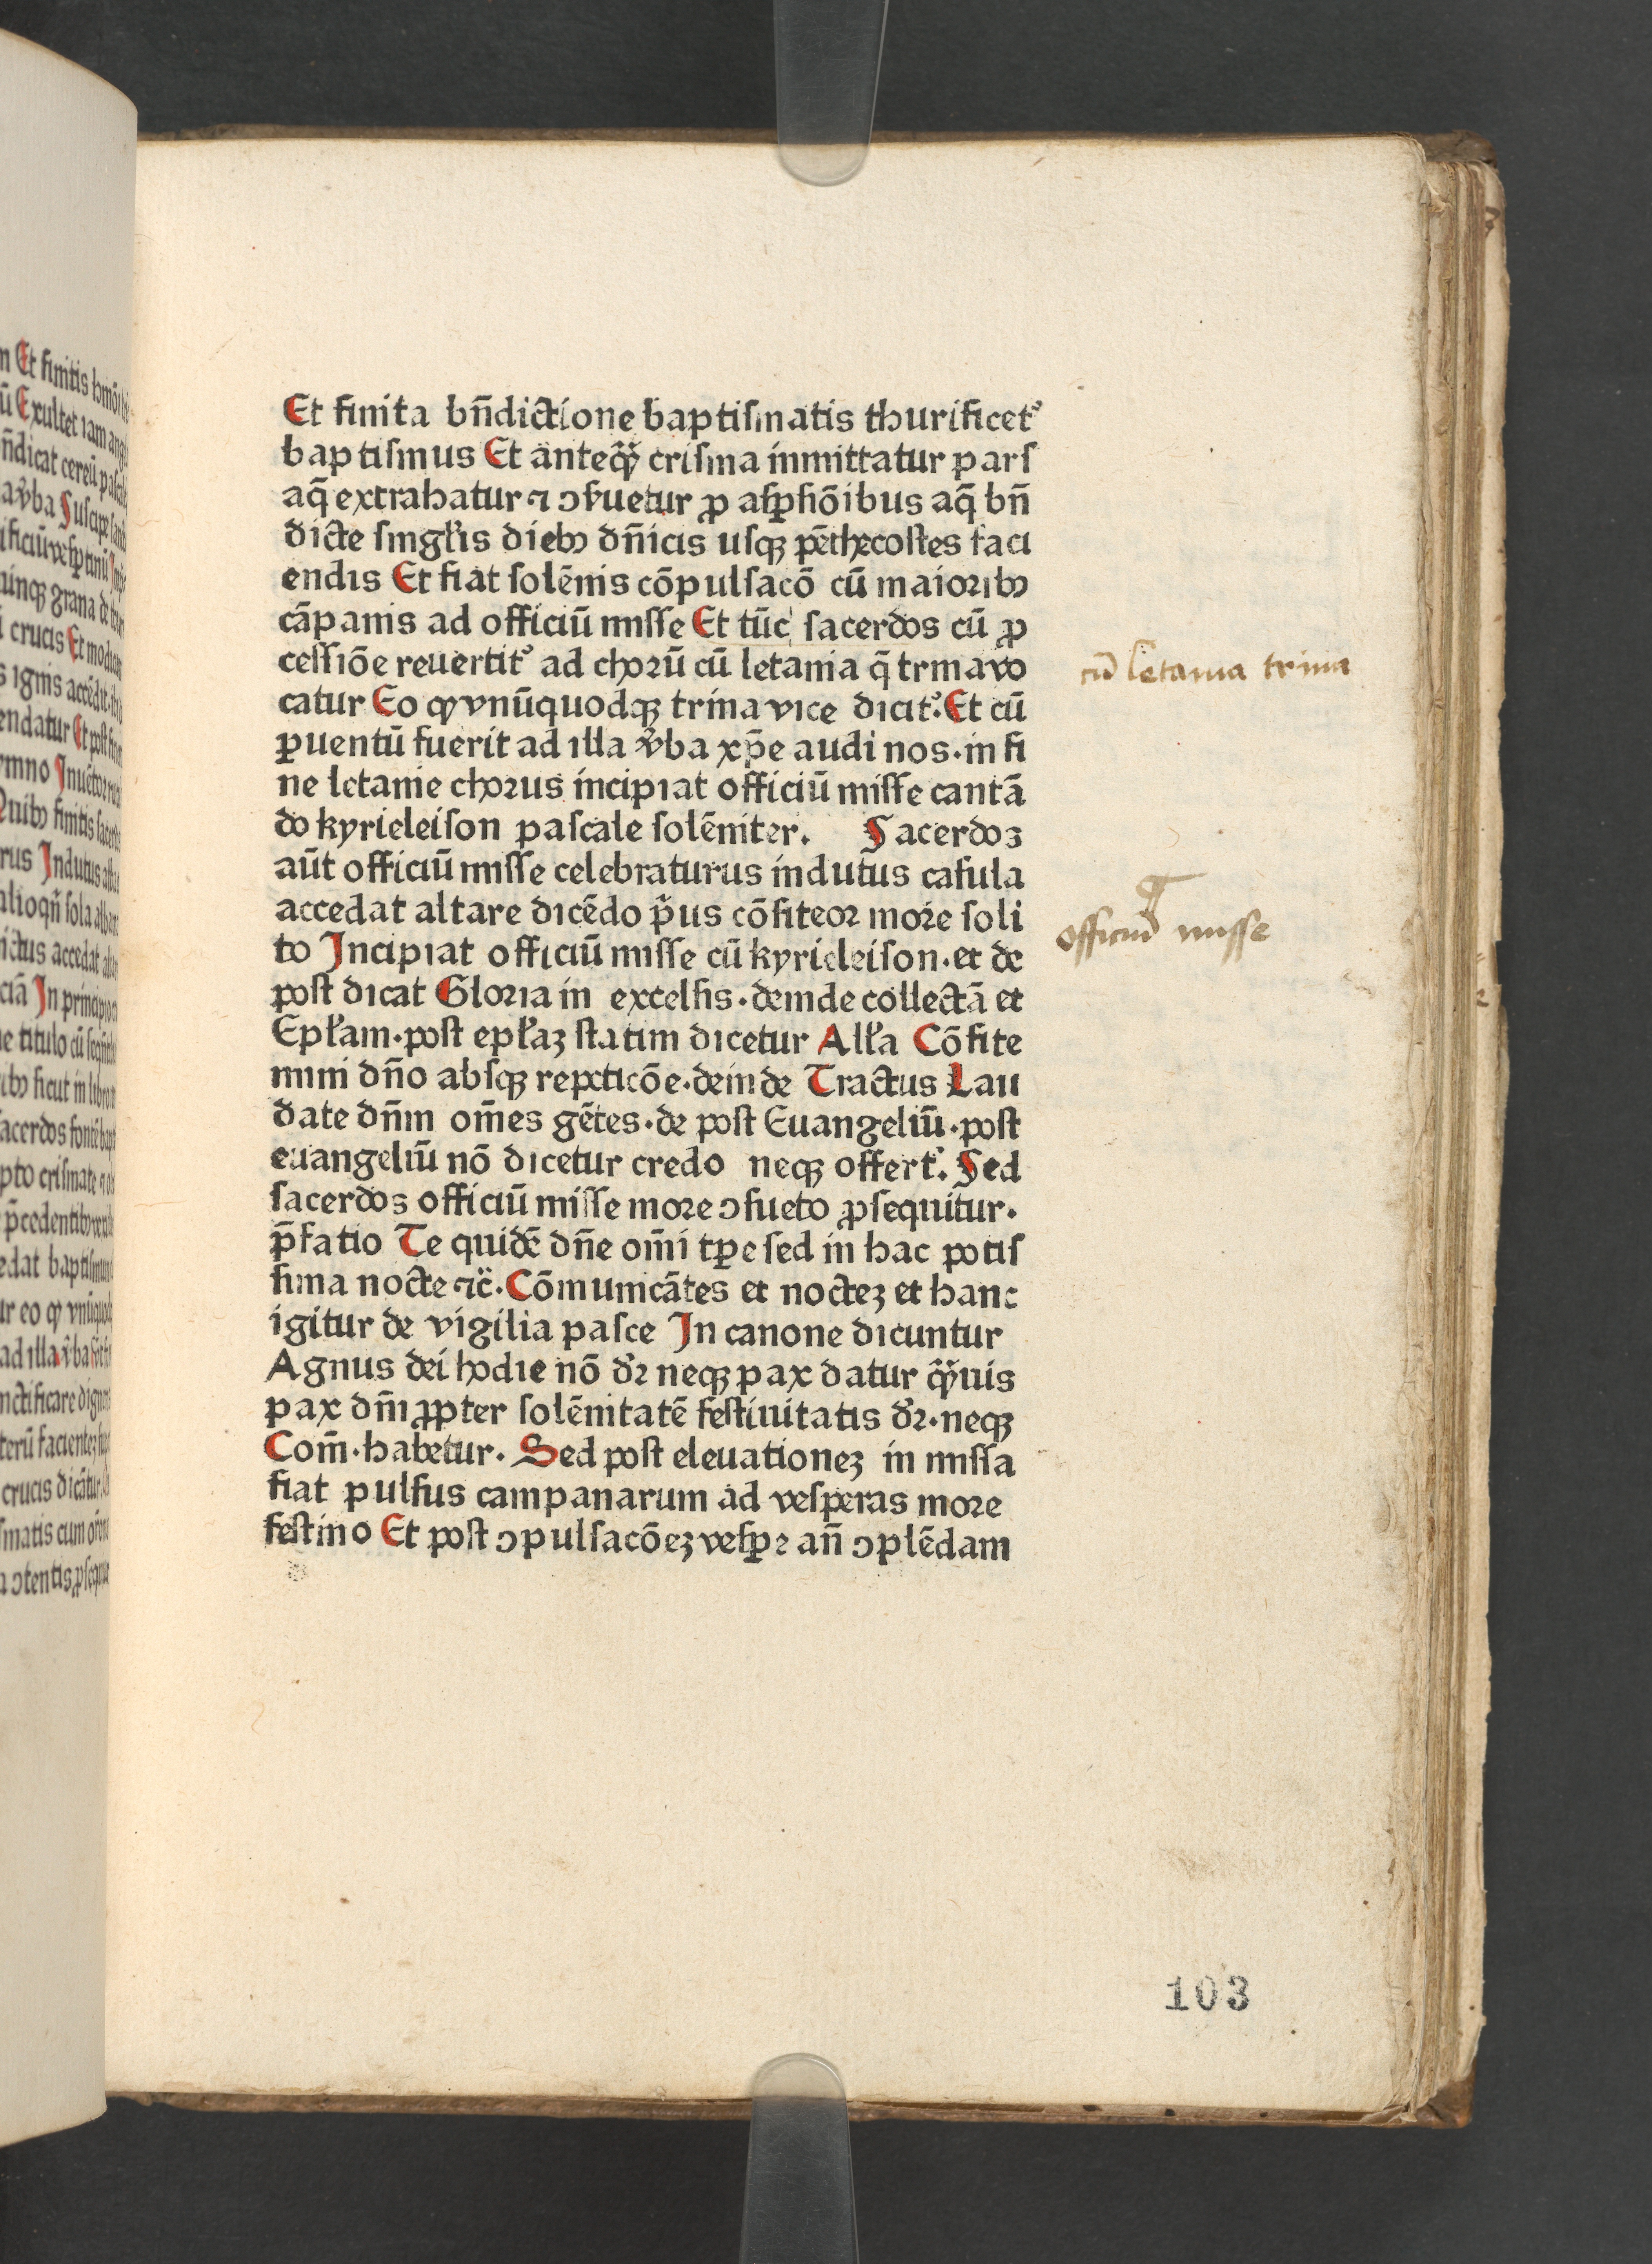 Et finita bn̄dictione baptiſmatis thurificetˀ
baptiſmus Et anteqͣꝫ criſma inmittatur parſ
aq̄ extrahatur ⁊ ꝯẜuetur ꝓ aſꝑſiōibus aq̄ bn̄
dicte ſingl̓is diebꝰ dn̄icis uſqꝫ pēthecoſtes faci
endis Et fiat ſolēnis cōpulſacō cū maioribꝰ
cāpanis ad officiū miſſe Et tūc ſacerdos cū ꝓ
ceſſiōe reuertitˀ ad chorū cū letania q̄ trina vo
catur Eo ꝙ vnūquodqꝫ trina vice dicitˀ. Et cū
ꝑuentū fuerit ad illa v̓ba xp̄e audi nos. in fi
ne letanie chorus incipiat officiū miſſe cantā
do kyrieleiſon paſcale ſolēniter. Sacerdos
aūt officiū miſſe celebraturus indutus caſula
accedat altare dicēdo p̓us cōfiteor more ſoli
to Incipiat officiū miſſe cū kyrieleiſon. et de
poſt dicat Gloria in excelſis. deinde collectā et
Epl̓am. poſt epl̓aꝫ ſtatim dicetur All̓a Cōfite
mini dn̄o abſqꝫ repeticōe. deinde Tractus Lau
date dn̄m om̄es gētes. de poſt Euangeliū. poſt
euangeliū nō dicetur credo neqꝫ offertˀ. Sed
ſacerdos officiū miſſe more ꝯſueto ꝓſequitur.
p̄fatio Te quidē dn̄e om̄i tꝑe ſed in hac potiſ
ſima nocte ⁊c̄. Cōmunicātes et nocteꝫ et hanc
igitur de vigilia paſce In canone dicuntur
Agnus dei hodie nō dr̄ neqꝫ pax datur qͣꝫuis
pax dn̄i ꝓpter ſolēnitatē feſtiuitatis dr̄. neqꝫ
Com̄. habetur. Sed poſt eleuationeꝫ in miſſa
fiat pulſus campanarum ad veſperas more
feſtiuo Et poſt ꝯpulſacōeꝫ veſꝑꝝ an̄ ꝯplēdam
cū letania trina
officiū miſſe
103